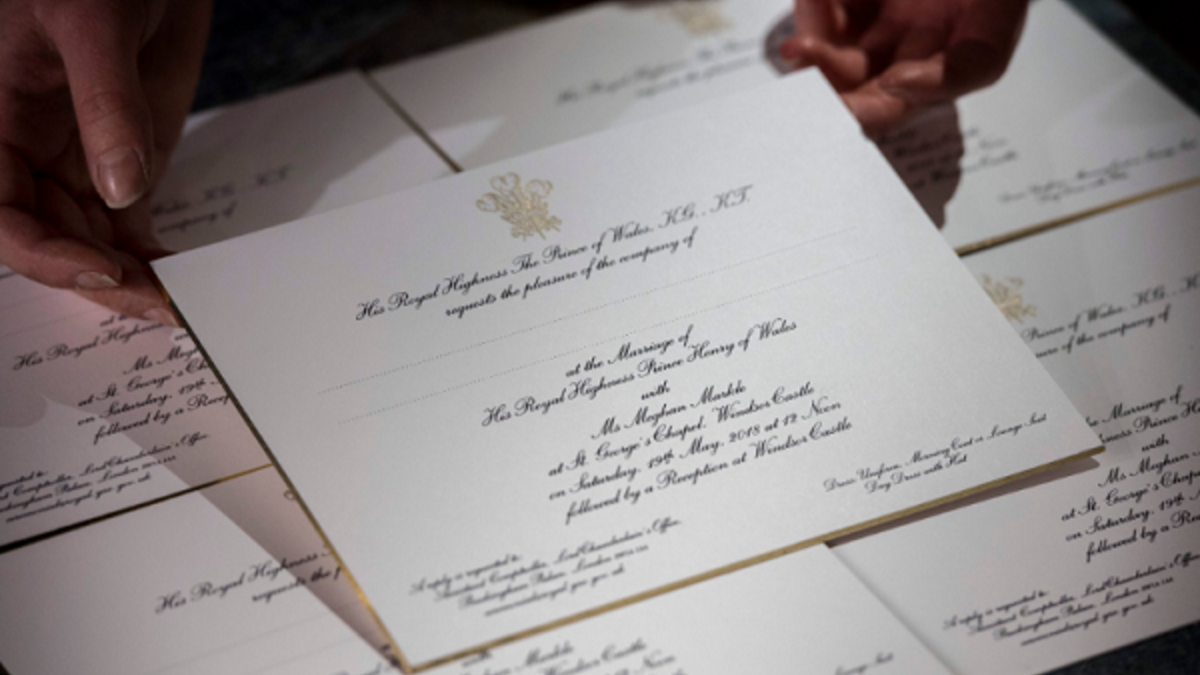 His Royal Highness The Prince of Wales, K.G., K.T.
requests the pleasure of the company of
at the Marriage of
His Royal Highness Prince Henry of Wales
with
Ms Meghan Markle
at St. George's Chapel, Windsor Castle
on Saturday, 19th May, 2018 at 12 Noon
followed by a Reception at Windsor Castle
Dress: Uniform, Morning Coat or Lounge Suit
Day Dress with Hat
A reply is requested to:
Assistant Comptroller, Lord Chamberlain's Office,
Buckingham Palace, London
company of
His Royal Highness
Ms Meghan
at St. George's Cha
on Saturday, 19th
followed by a Recep
Lord Chamberlain's Office
Buckingham Palace, London
His Royal Highness
requests the p
Prince of Wales, K.G., K
sure of the company of
Marriage of
ness Prince H
with
Ms Meghan
at St. George's Chape
on Saturday, 19th
followed by a Re
A reply is requested to:
Assistant Comptroller, Lord Chamberlain's Office
Buckingham Palace, London
with
Markle
Windsor Castle
12 Noon